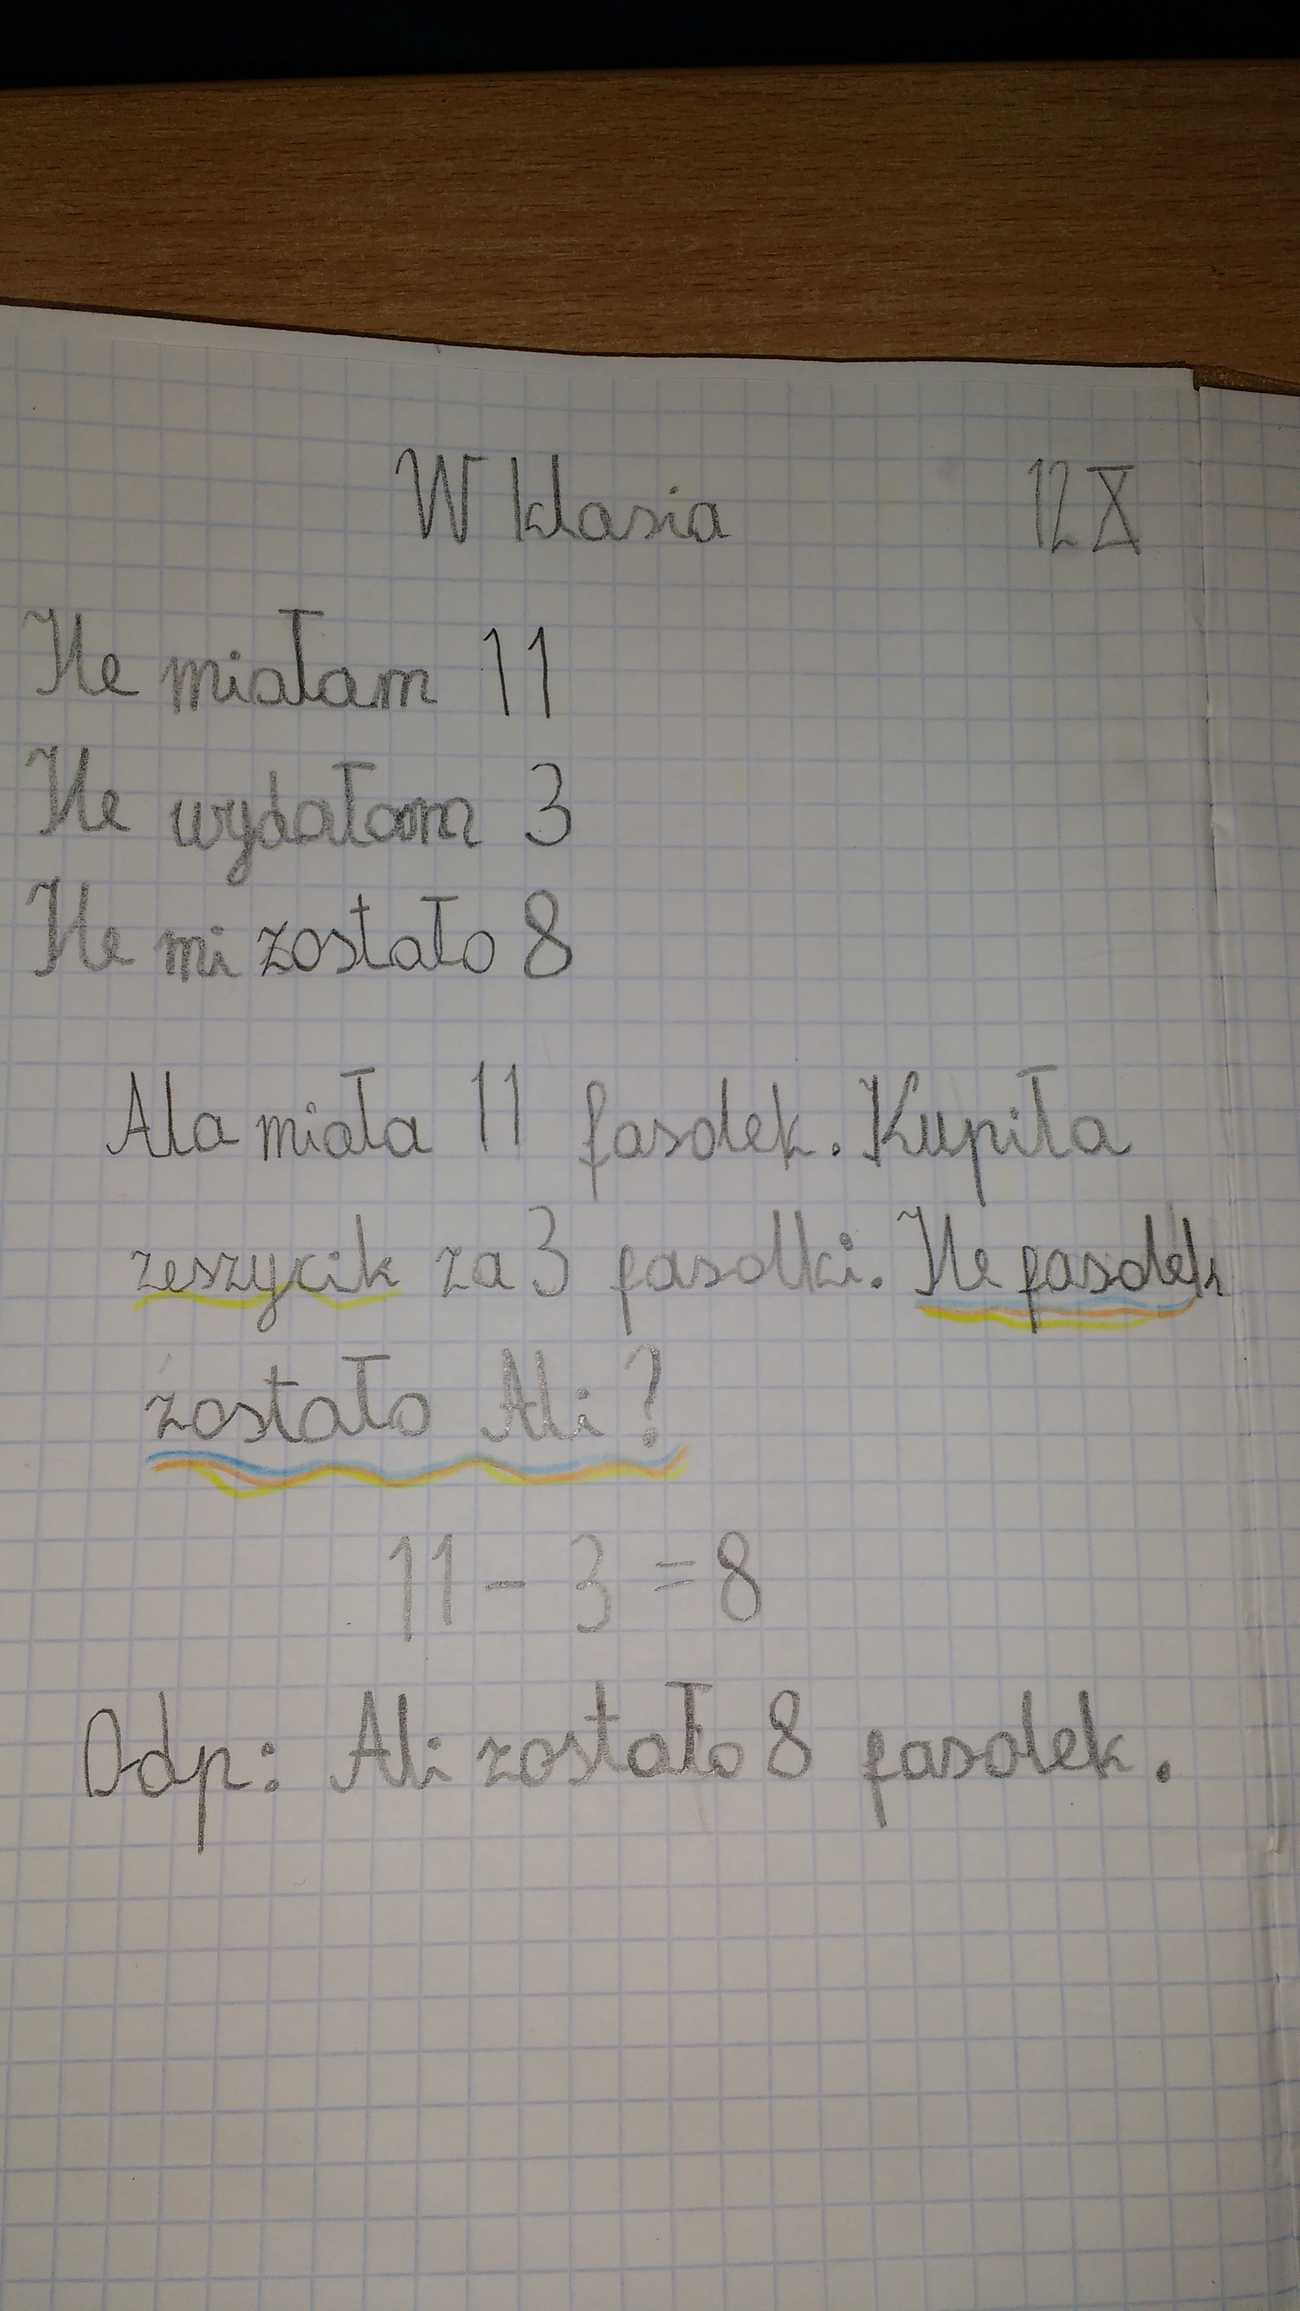 W klasia 12 X
Ile miałam 11
Ile wydałam 3
Ile mi zostało 8
Ala miała 11 fasolek. Kupiła
zeszycik za 3 fasolki. Ile fasolek
zostało Ali?
11 - 3 = 8
Odp: Ali zostało 8 fasolek.